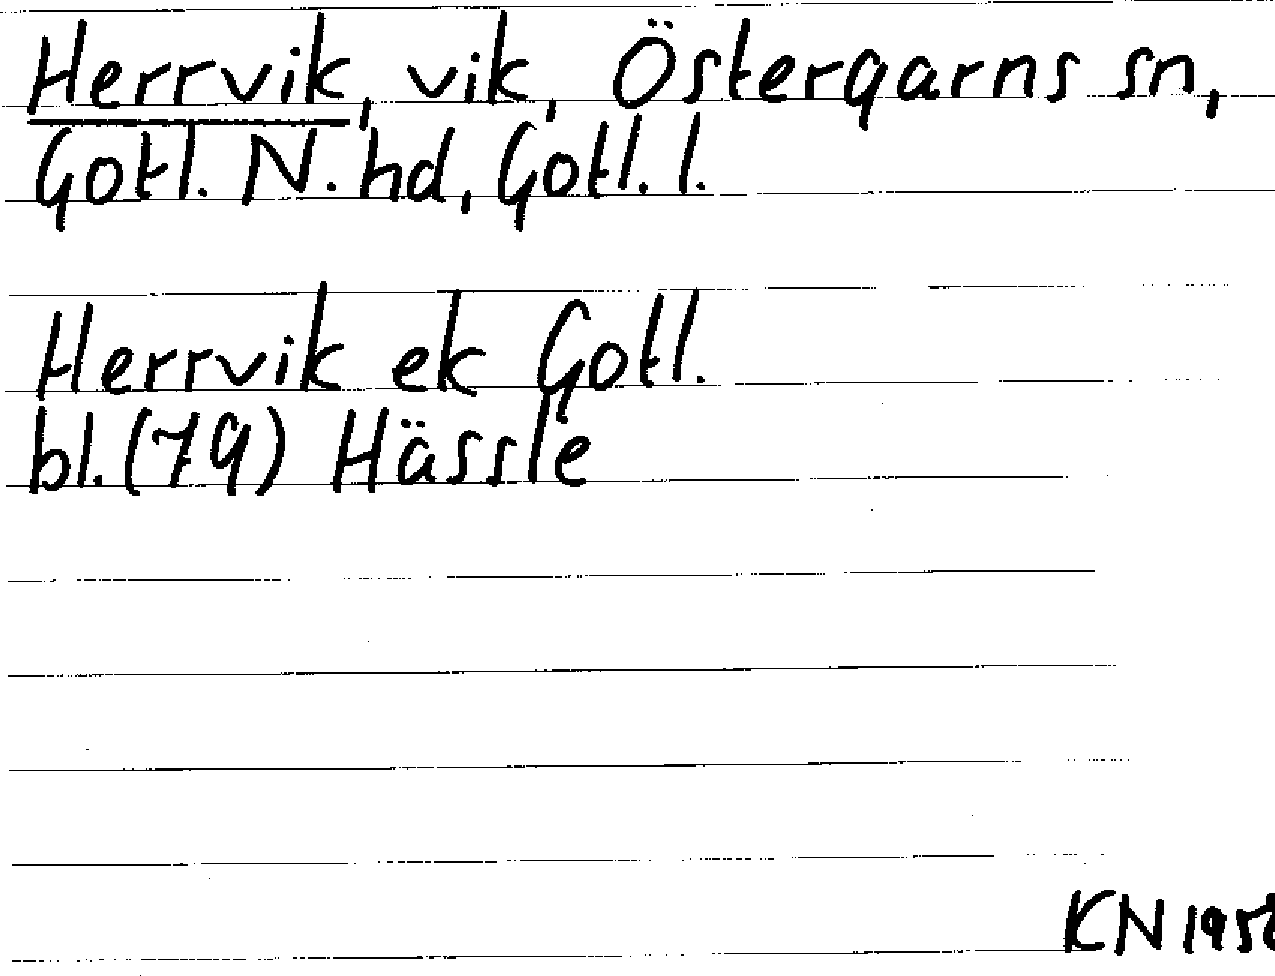 Herrvik, vik, Östergarns sn,
Gotl. N. hd, Gotl. l.
Herrvik ek Gotl.
bl. (79) Hässle
KN